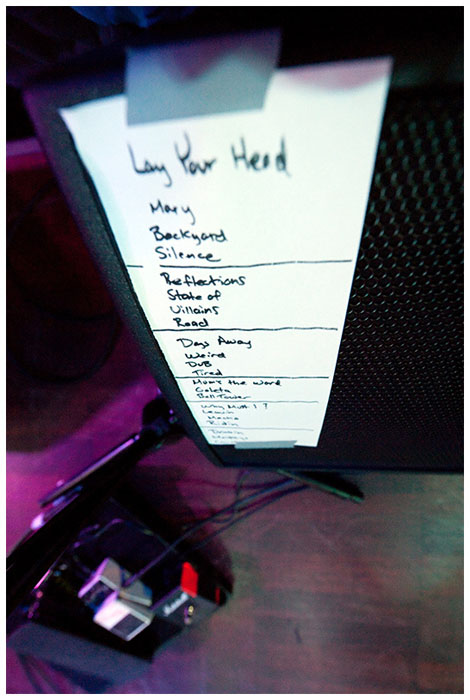 Lay Your Head
Mary
Backyard
Silence
Reflections
State of
Villains
Road
Days Away
Weird
DUB
Tired
Mum's the word
Goleta
Bell Tower
Why Mutt 1?